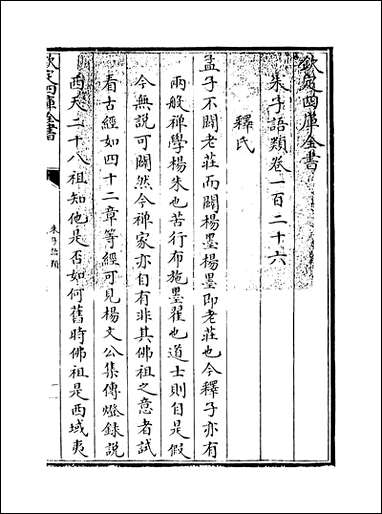 欽定四庫全書
朱子語類卷一百二十六
釋氏
孟子不闢老莊而闢楊墨楊墨即老莊也今釋子亦有
兩般禅學楊朱也苦行布施墨翟也道士則自是假
今無説可闢然今禅家亦自有非其佛祖之意者試
看古經如四十二章等經可見楊文公集傳燈録説
西天二十八祖知他是否如何舊時佛祖是西域夷
欽定四庫全書
朱子語類
一